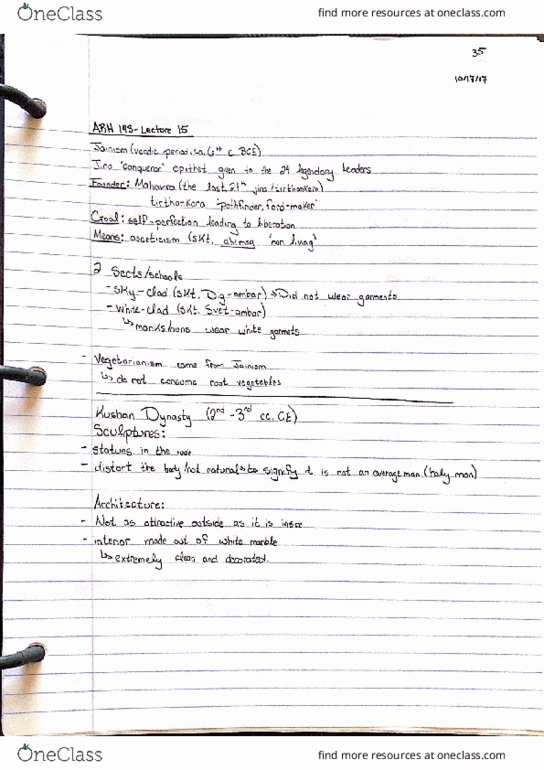 OneClass
find more resources at oneclass.com
35
10/17/17
ARH 193 - Lecture 15
Jainism (vedic period, ca. 6th c BCE)
Jina 'conqueror' epithet given to the 24 legendary leaders
Founder: Mahavira (the last, 24th jina/tirthankara)
tirthankara 'pathfinder, ford-maker'
Goal: self-perfection leading to liberation
Means: asceticism (SKt. ahimsa 'non living')
2 Sects/schools
- Sky-Clad (SKt. Dig-ambar) → Did not wear garments
- White-Clad (SKt. Svet-ambar)
↳ monks/nuns wear white garments
- Vegetarianism come from Jainism
↳ do not consume root vegetables
Kushan Dynasty (2nd - 3rd cc. CE)
Sculptures:
- statues in the nude
- distort the body/not natural to signify it is not an average man (holy man)
Architecture:
- Not as attractive outside as it is inside
- interior made out of white marble
↳ extremely clean and decorated.
OneClass
find more resources at oneclass.com